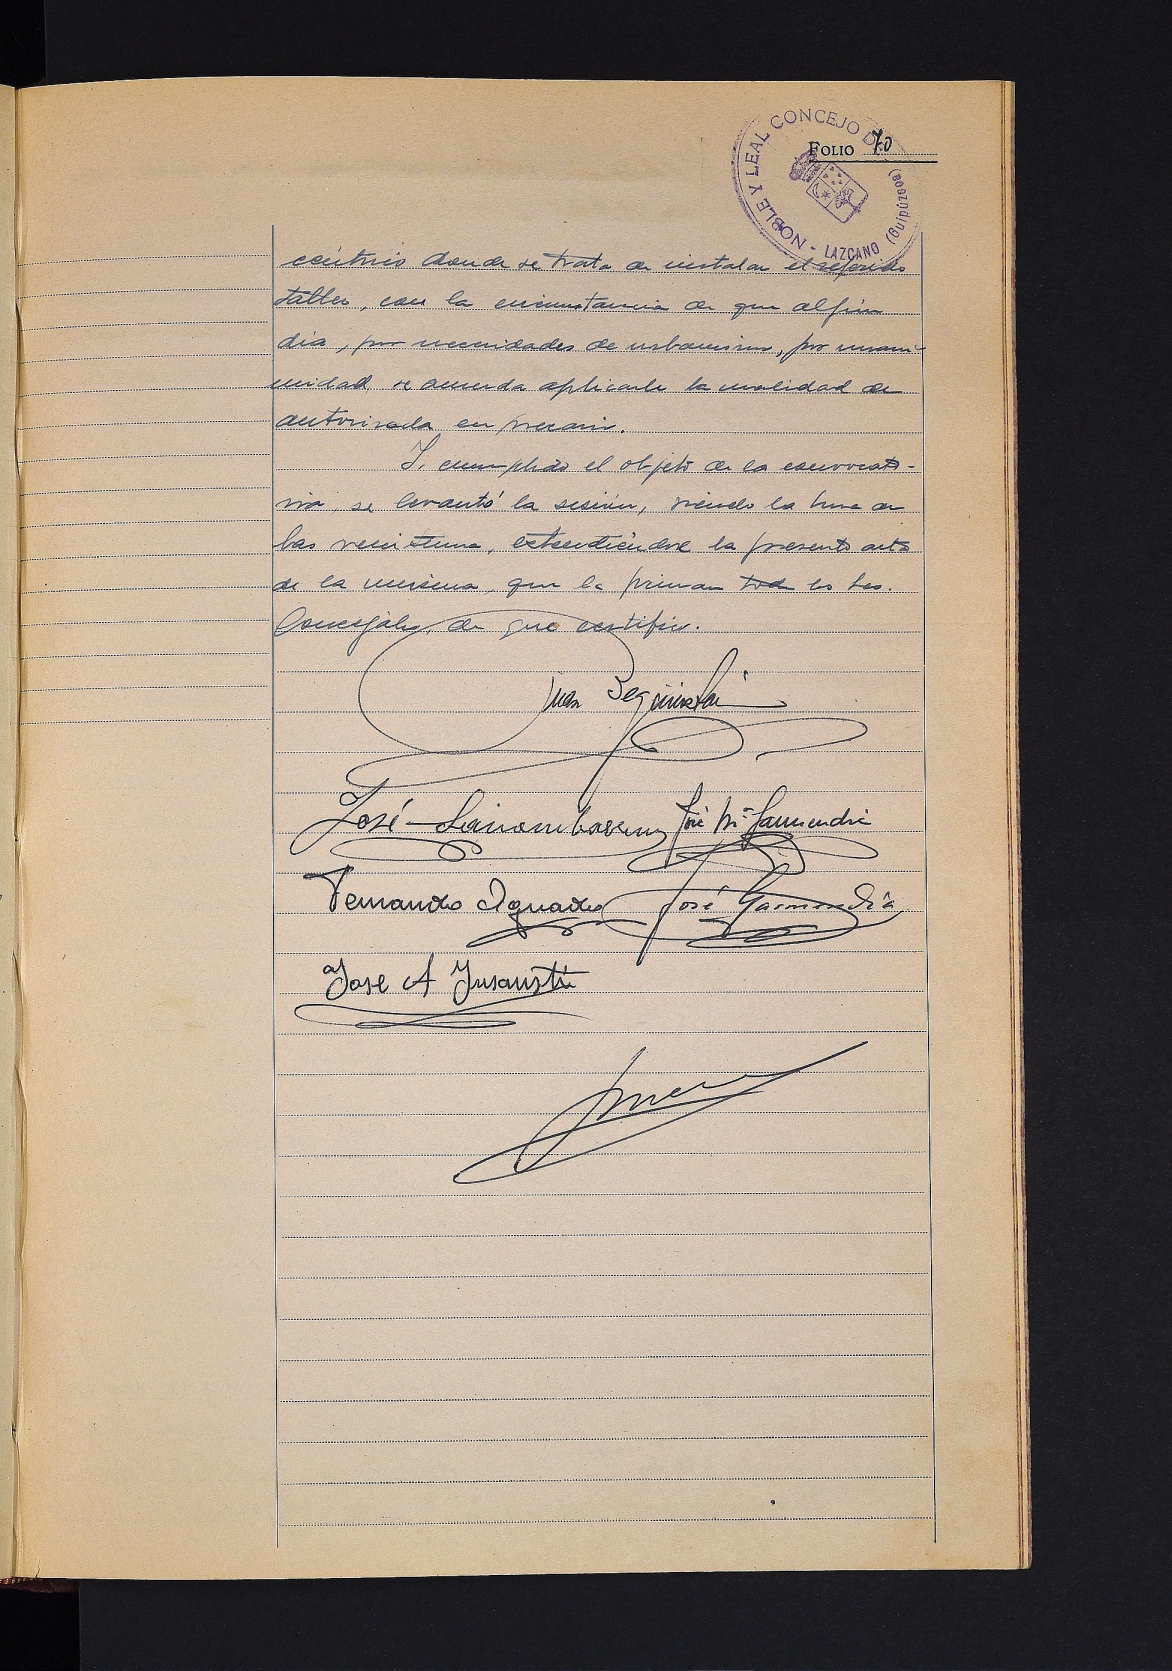 NOBLE Y LEAL CONCEJO DE
LAZCANO (Guipúzcoa)
FOLIO 70
céntrico donde se trata de instalar el referido
taller, con la circunstancia de que algún
día, por necesidades de urbanismo, por unani-
midad, se acuerda aplicarle la calidad de
autorizada en precario.
Y, cumplido el objeto de la convocato-
ria, se levantó la sesión, siendo la hora de
las veintiuna, extendiéndose la presente acta
de la misma, que la firman los Sres.
Concejales, de que certifico.
Juan Beguiristain
José
José Mª Garmendia
Fernando Aguado
José Garmendia
Jose A Insausti